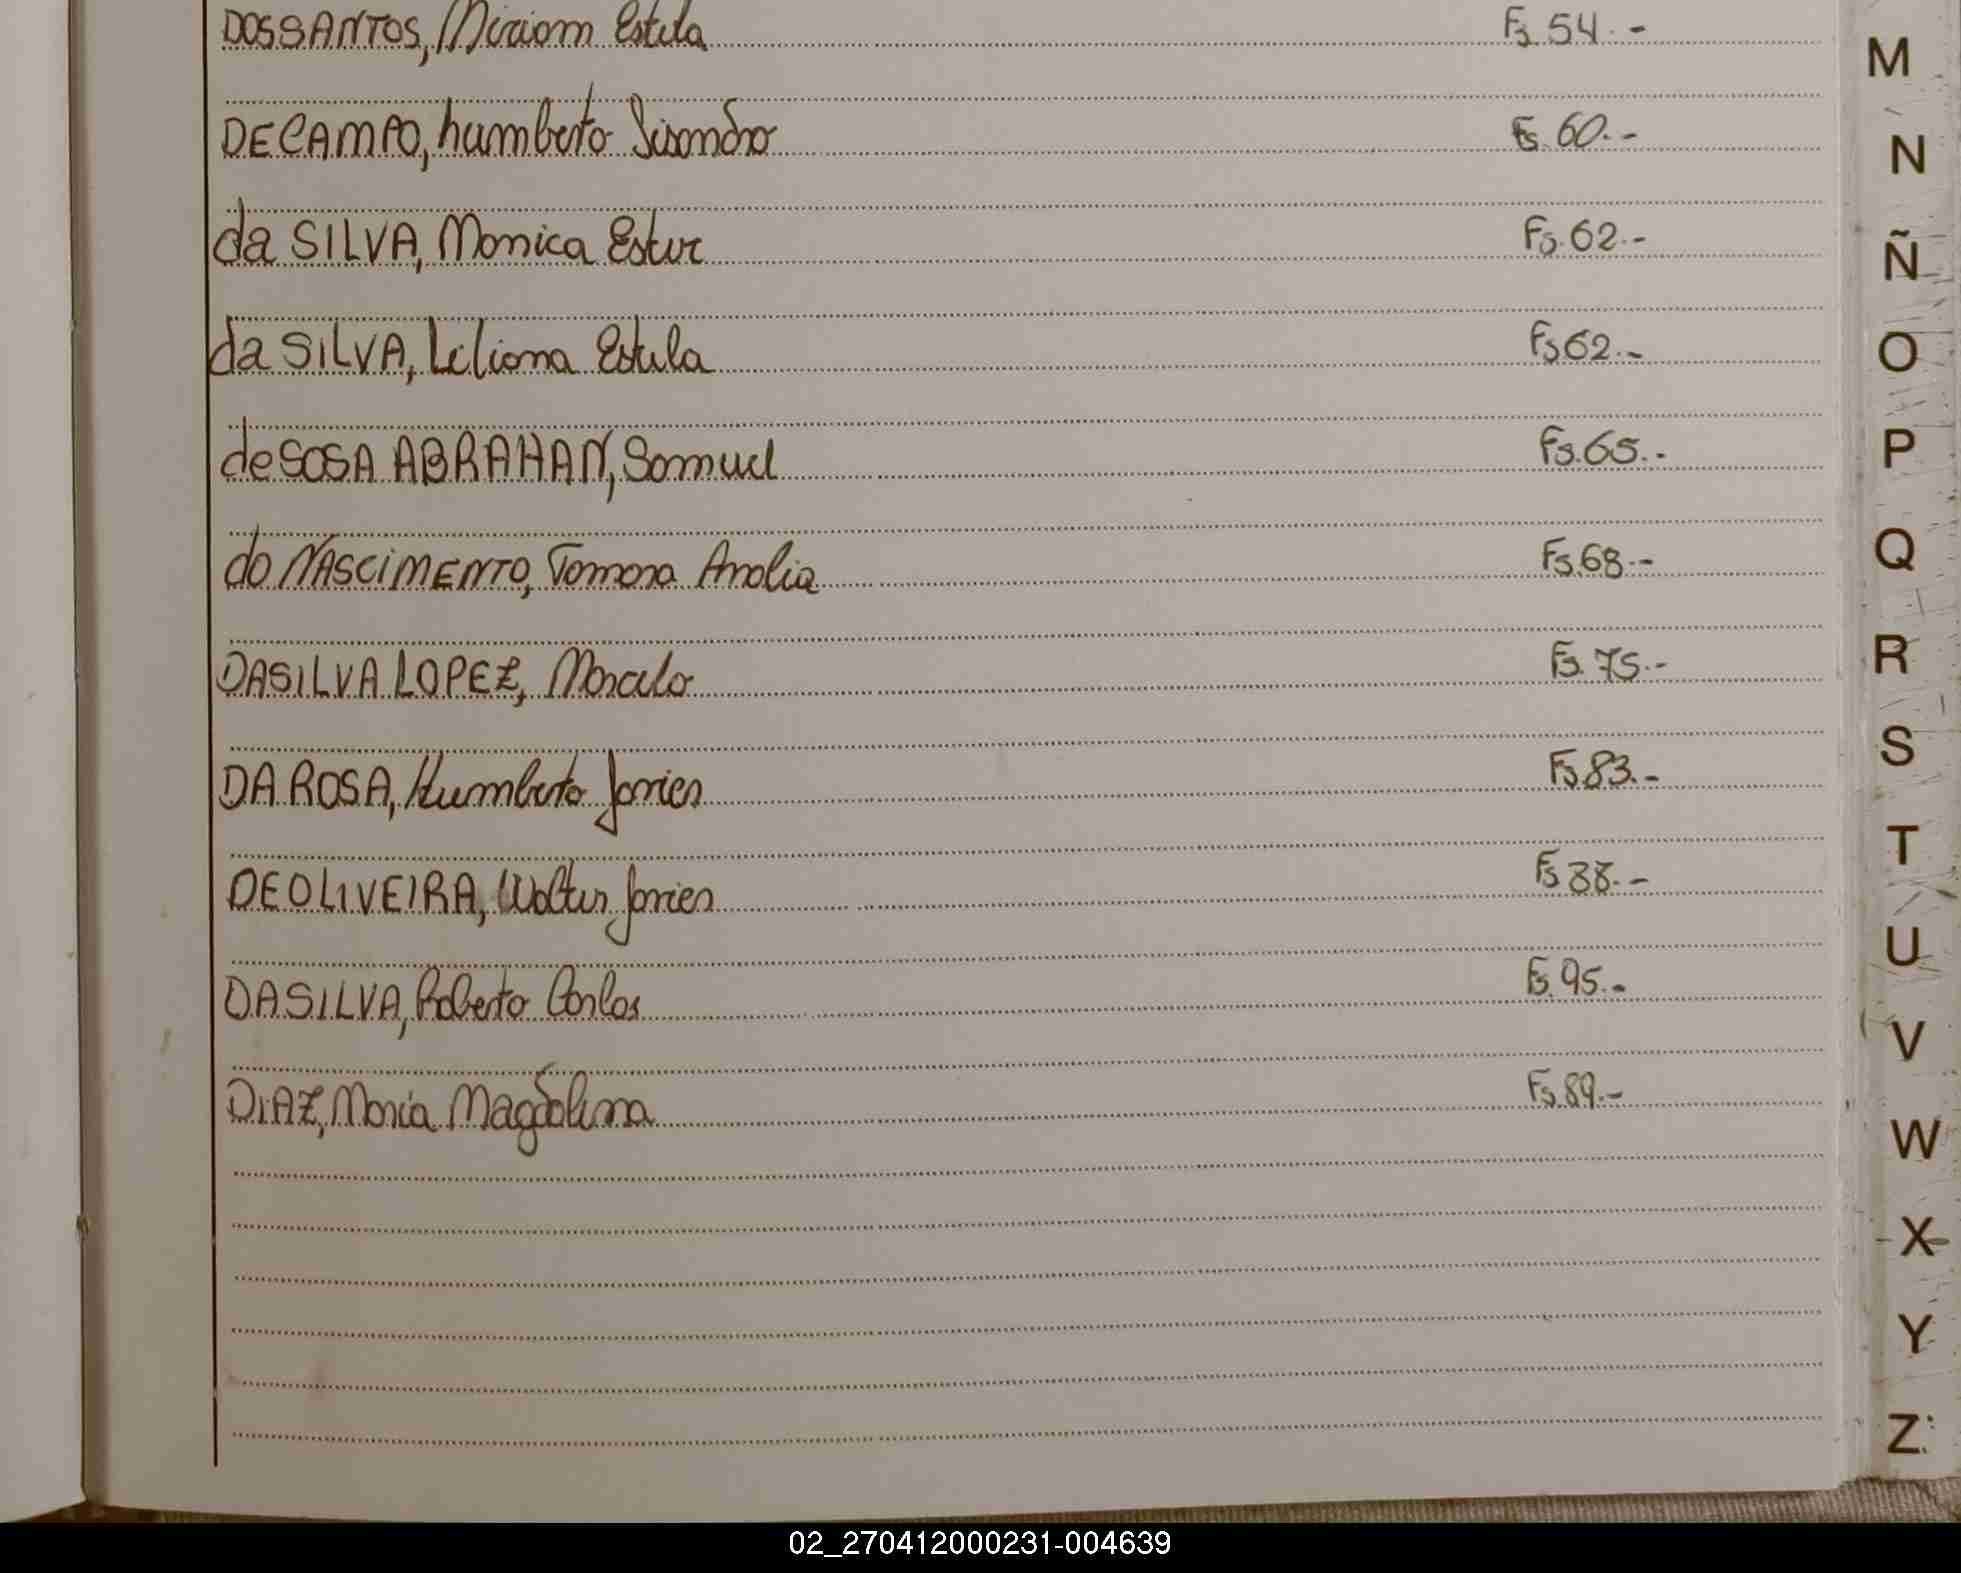 DOSSANTOS, Miriam Estela Fs. 54.-
DECAMPO, humberto Lisandro Fs. 60.-
da SILVA, Monica Ester Fs. 62.-
da SILVA, Liliana Estela Fs 62.-
de SOSA ABRAHAN, Samuel Fs. 65.-
do NASCIMENTO, Tamara Analia Fs. 68.-
DASILVA LOPEZ, Marcelo Fs. 75.-
DA ROSA, Humberto Javier Fs. 83.-
DEOLIVEIRA, Walter Javier Fs 88.-
DASILVA, Roberto Carlos Fs. 95.-
DIAZ, Maria Magdalena Fs. 89.-
M
N
Ñ
O
P
Q
R
S
T
U
V
W
X
Y
Z
02_270412000231-004639